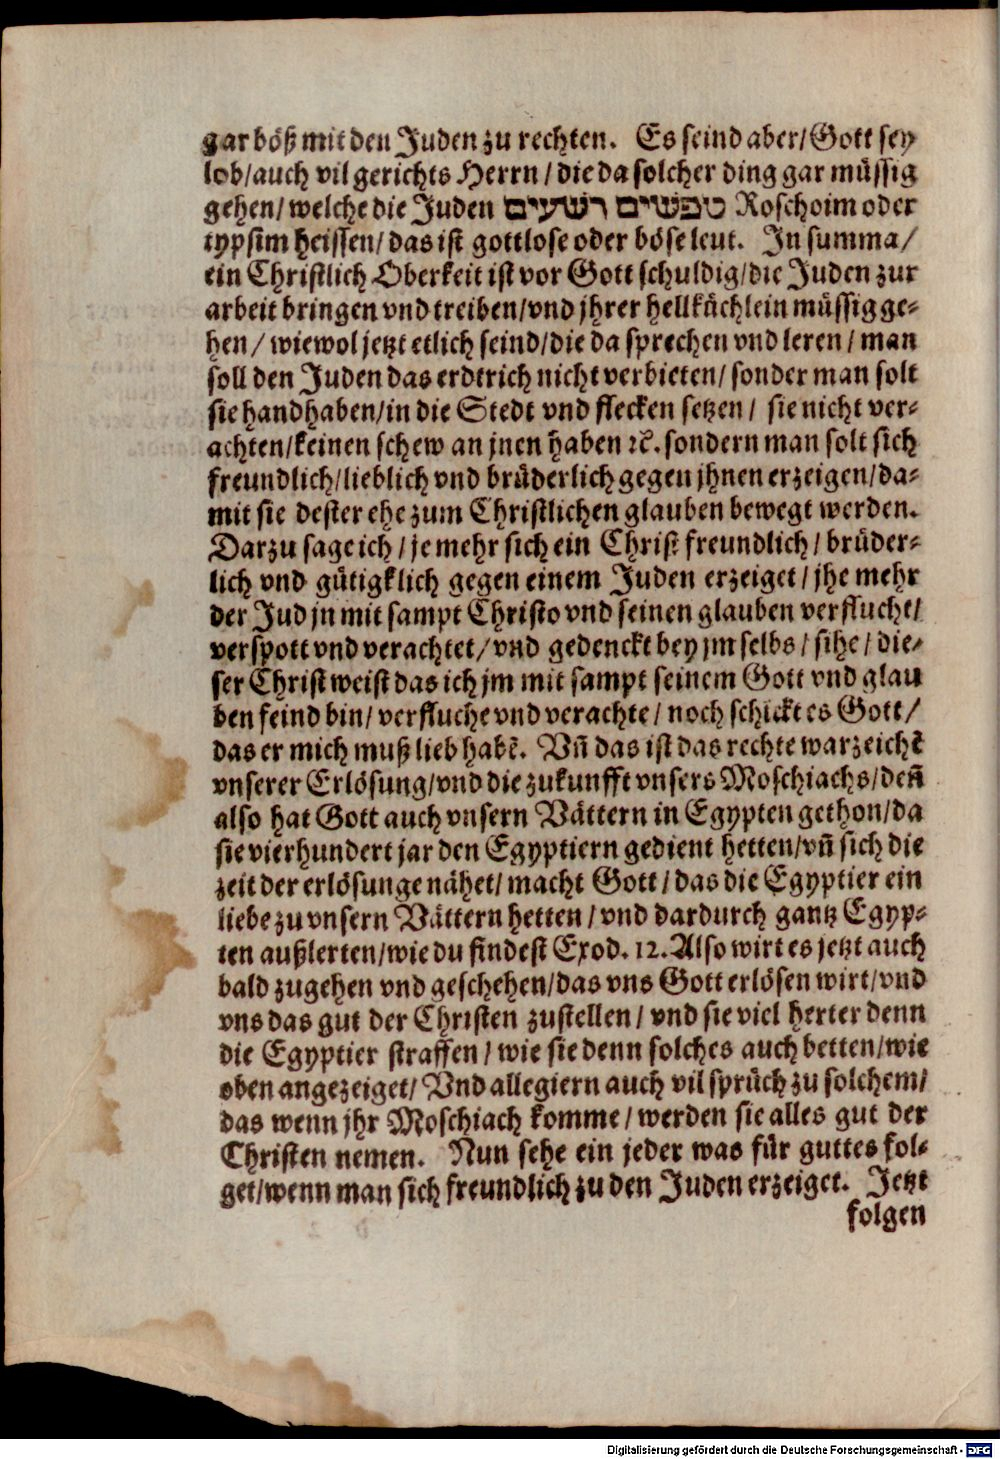 gar böß mit den Juden zu rechten. Es seind aber/Gott sey
lob/auch vil gerichts Herrn/die da solcher ding gar müssig
gehen/welche die Juden טפשים רשעים Roschoim oder
typsim heissen/das ist gottlose oder böse leut. In summa/
ein Christlich Oberkeit ist vor Gott schuldig/die Juden zur
arbeit bringen vnd treiben/vnd jhrer hellküchlein müssig ge-
hen/wiewol jetzt etlich seind/die da sprechen vnd leren/man
soll den Juden das erdtrich nicht verbieten/sonder man solt
sie handhaben/in die Stedt vnd flecken setzen/sie nicht ver-
achten/keinen schew an jnen haben ꝛc. sondern man solt sich
freundlich/lieblich vnd brüderlich gegen jhnen erzeigen/da-
mit sie dester ehe zum Christlichen glauben bewegt werden.
Darzu sage ich/je mehr sich ein Christ freundlich/brüder-
lich vnd gütigklich gegen einem Juden erzeiget/jhe mehr
der Jud jn mit sampt Christo vnd seinen glauben verflucht/
verspott vnd verachtet/vnd gedenckt bey jm selbs/sihe/die-
ser Christ weist das ich jm mit sampt seinem Gott vnd glau
ben feind bin/verfluche vnd verachte/noch schickt es Gott/
das er mich muß lieb habē. Vñ das ist das rechte warzeichē
vnserer Erlösung/vnd die zukunfft vnsers Moschiachs/deñ
also hat Gott auch vnsern Vättern in Egypten gethon/da
sie vierhundert jar den Egyptiern gedient hetten/vñ sich die
zeit der erlösunge nähet/macht Gott/das die Egyptier ein
liebe zu vnsern Vättern hetten/vnd dardurch gantz Egyp-
ten außlerten/wie du findest Exod. 12. Also wirt es jetzt auch
bald zugehen vnd geschehen/das vns Gott erlösen wirt/vnd
vns das gut der Christen zustellen/vnd sie viel herter denn
die Egyptier straffen/wie sie denn solches auch betten/wie
oben angezeiget/Vnd allegiern auch vil sprüch zu solchem/
das wenn jhr Moschiach komme/werden sie alles gut der
Christen nemen. Nun sehe ein jeder was für guttes fol-
get/wenn man sich freundlich zu den Juden erzeiget. Jetzt
folgen
Digitalisierung gefördert durch die Deutsche Forschungsgemeinschaft - DFG